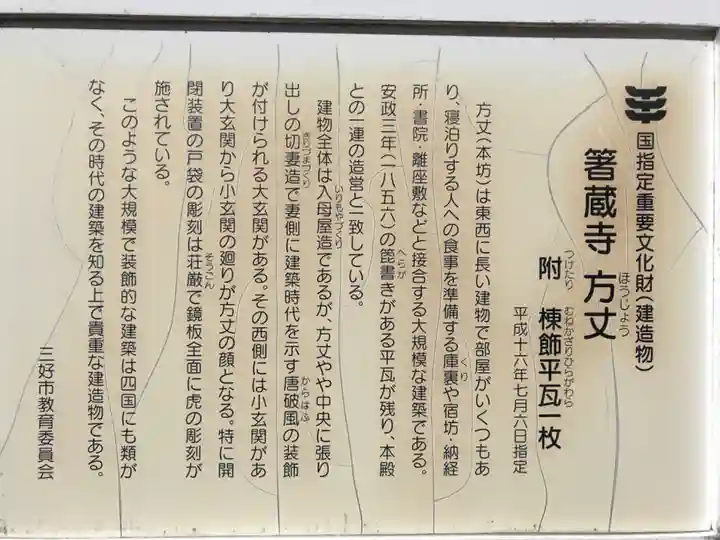 国指定重要文化財(建造物)
箸蔵寺 方丈
ほうじょう
附 棟飾平瓦一枚
つけたり むねかざりひらがわら
平成十六年七月六日指定
方丈(本坊)は東西に長い建物で部屋がいくつもあ
り、寝泊りする人への食事を準備する庫裏や宿坊・納経
くり
所・書院・離座敷などと接合する大規模な建築である。
安政三年(一八五六)の箆書きがある平瓦が残り、本殿
へらが
との一連の造営と一致している。
建物全体は入母屋造であるが、方丈やや中央に張り
いりもやづくり
出しの切妻造で妻側に建築時代を示す唐破風の装飾
きりづまづくり からはふ
が付けられる大玄関がある。その西側には小玄関があ
り大玄関から小玄関の廻りが方丈の顔となる。特に開
閉装置の戸袋の彫刻は荘厳で鏡板全面に虎の彫刻が
そうごん
施されている。
このような大規模で装飾的な建築は四国にも類が
なく、その時代の建築を知る上で貴重な建造物である。
三好市教育委員会